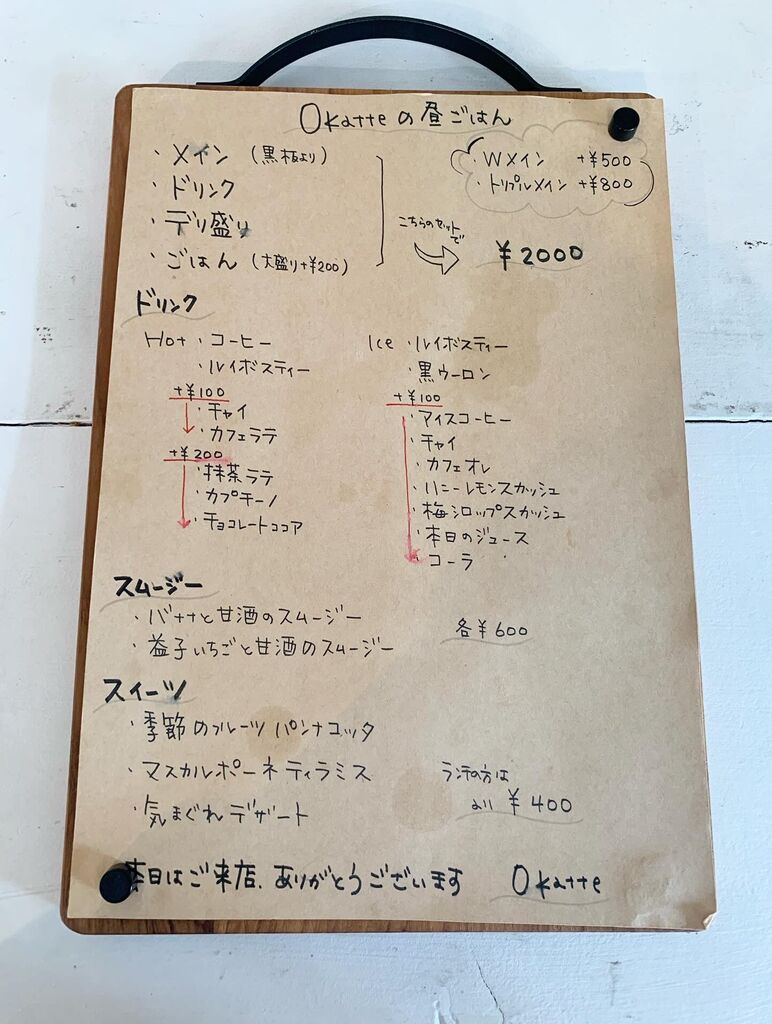 Okatteの昼ごはん
・メイン（黒板より）
・ドリンク
・デリ盛り
・ごはん（大盛り+¥200）
こちらのセットで
¥2000
・Wメイン +¥500
・トリプルメイン +¥800
ドリンク
Hot ・コーヒー
・ルイボスティー
+¥100
・チャイ
・カフェラテ
+¥200
・抹茶ラテ
・カプチーノ
・チョコレートココア
Ice ・ルイボスティー
・黒ウーロン
+¥100
・アイスコーヒー
・チャイ
・カフェオレ
・ハニーレモンスカッシュ
・梅シロップスカッシュ
・本日のジュース
・コーラ
スムージー
・バナナと甘酒のスムージー
・益子いちごと甘酒のスムージー
各¥600
スイーツ
・季節のフルーツパンナコッタ
・マスカルポーネティラミス
・気まぐれデザート
ランチの方は
¥400
本日はご来店、ありがとうございます Okatte